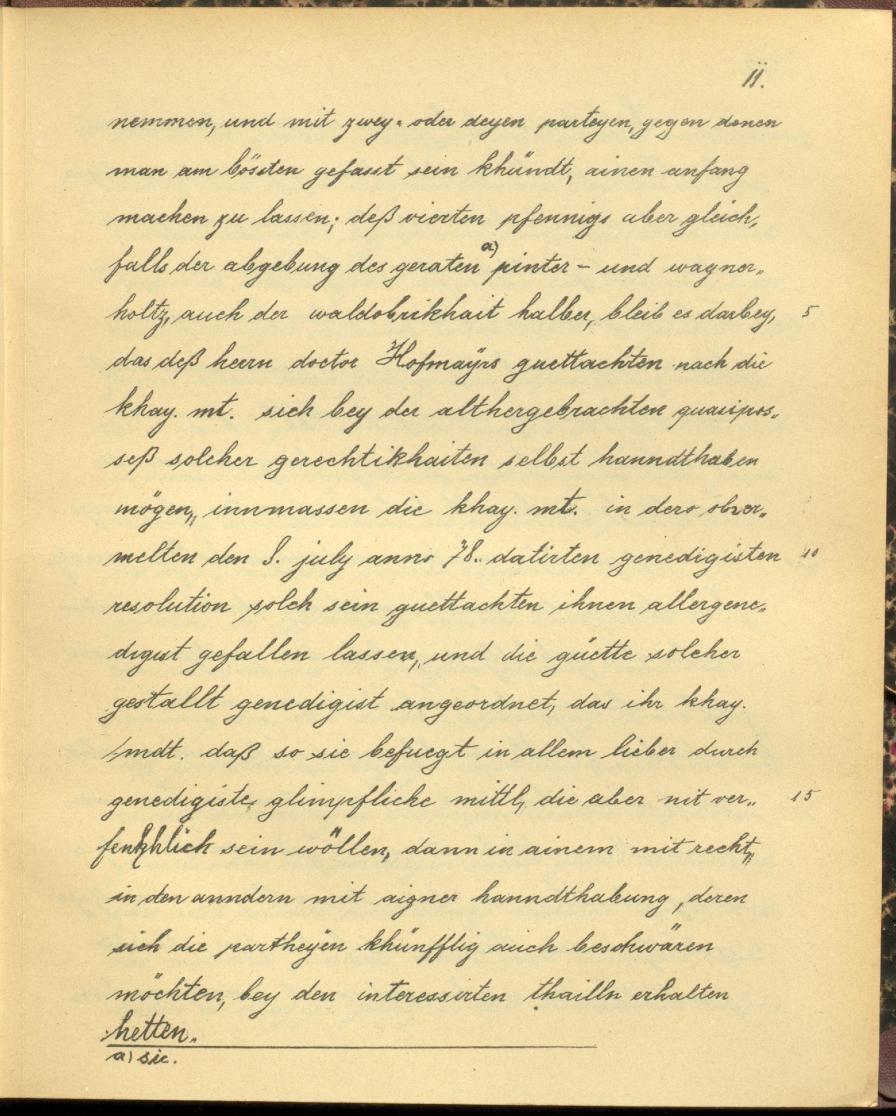 11.
nemmen, und mit zwey- oder dreyen parteyen, gegen denen
man am bössten gefasst sein khündt, ainen anfang
machen zu lassen; deß vierten pfennigs aber gleich„
falls der abgebung des geraten a) pinter- und wagner„
holtz, auch der waldobrikhait halber, bleib es darbey, 5
das deß herrn doctor Hofmaÿrs guettachten nach die
khay. mt. sich bey der althergebrachten quasipos„
seß solcher gerechtikhaiten selbst hanndthaben
mögen, innmassen die khay. mt. in dero ober„
melten den 8. july anno 78. datirten genedigisten 10
resolution solch sein guettachten ihnen allergene„
digist gefallen lassen, und die güette solcher
gestallt genedigist angeordnet, das ihr khay.
mdt. daß so sie befuegt in allem lieber durch
genedigiste, glimpfliche mittl, die aber nit ver„ 15
fenkhlich sein wöllen, dann in ainem mit recht,
in den anndern mit aigner hanndthabung, deren
sich die partheÿen khünfftig auch beschwären
möchten, bey den interessirten thailln erhalten
hetten.
a) sic.